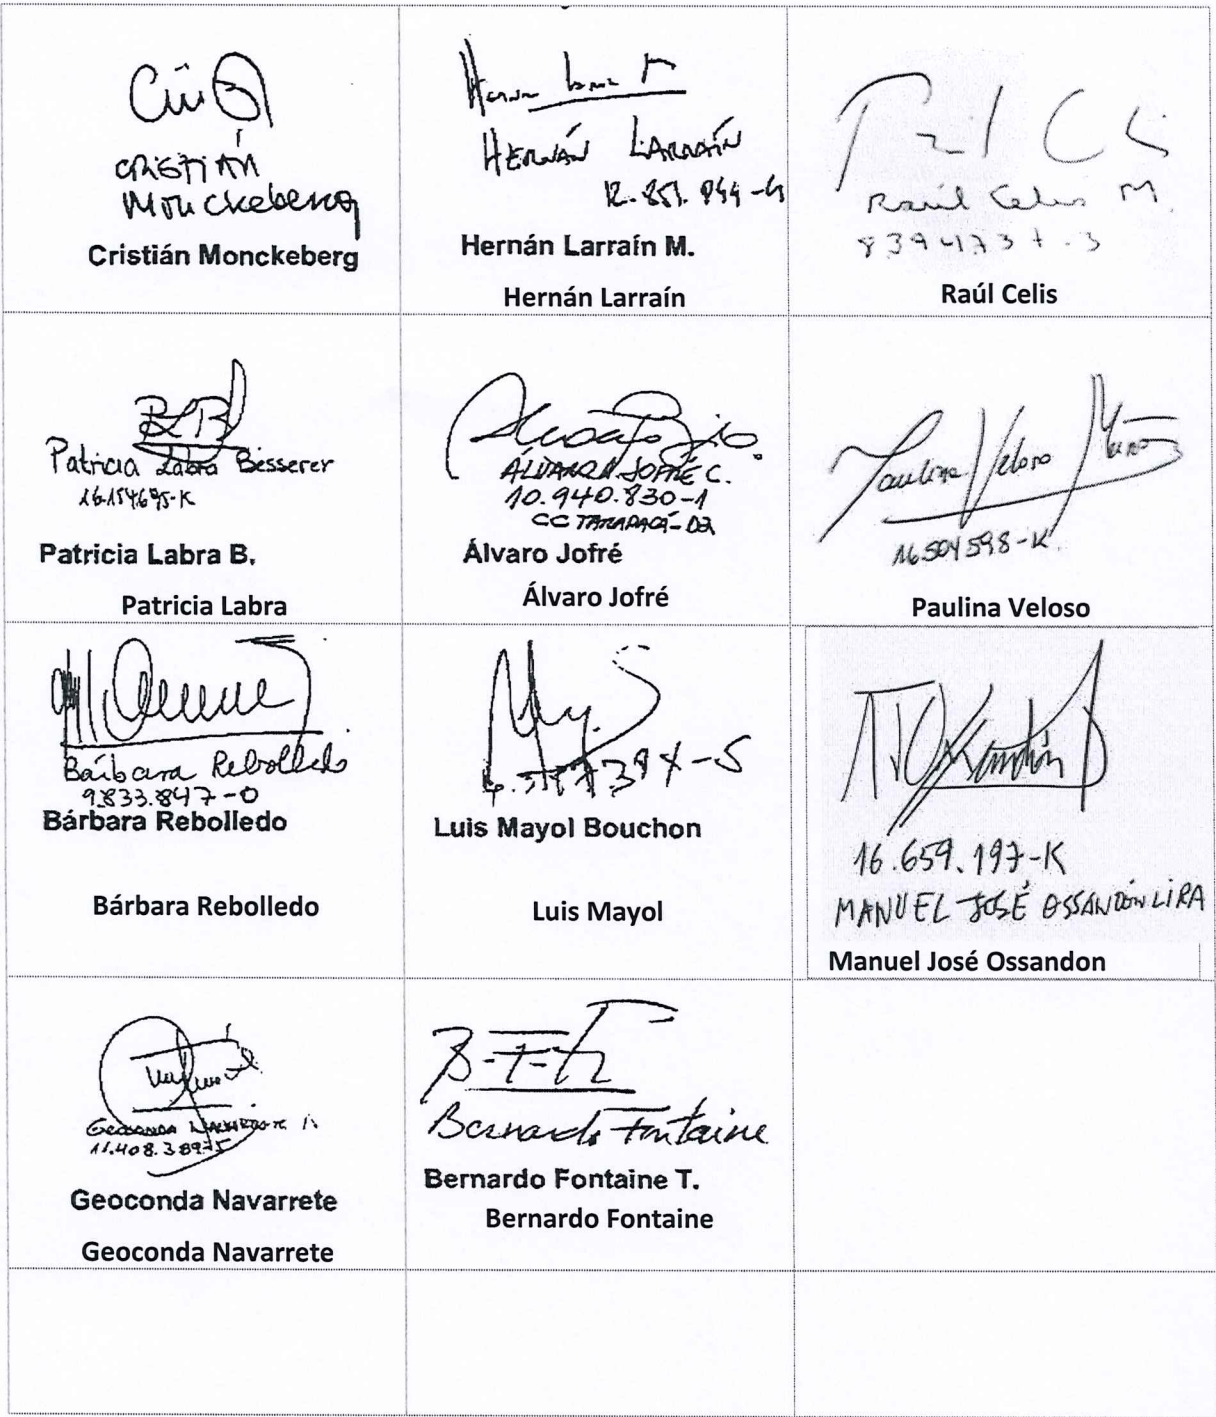 CRISTIÁN
Monckeberg
Cristián Monckeberg
HERNÁN LARRAÍN
Hernán Larraín M.
Hernán Larraín
Raúl Celis M.
Raúl Celis
Patricia Labra Besserer
16.154.695-K
Patricia Labra B.
Patricia Labra
ÁLVARO JOFRÉ C.
10.940.830-1
CC TARAPACÁ-D2
Álvaro Jofré
Álvaro Jofré
Paulina Veloso Muñoz
16504598-K
Paulina Veloso
Bárbara Rebolledo
9.833.847-0
Bárbara Rebolledo
Bárbara Rebolledo
Luis Mayol Bouchon
Luis Mayol
16.659.197-K
MANUEL JOSÉ OSSANDÓN LIRA
Manuel José Ossandon
Geoconda Navarrete
Geoconda Navarrete
Geoconda Navarrete
B-F-T
Bernardo Fontaine
Bernardo Fontaine T.
Bernardo Fontaine